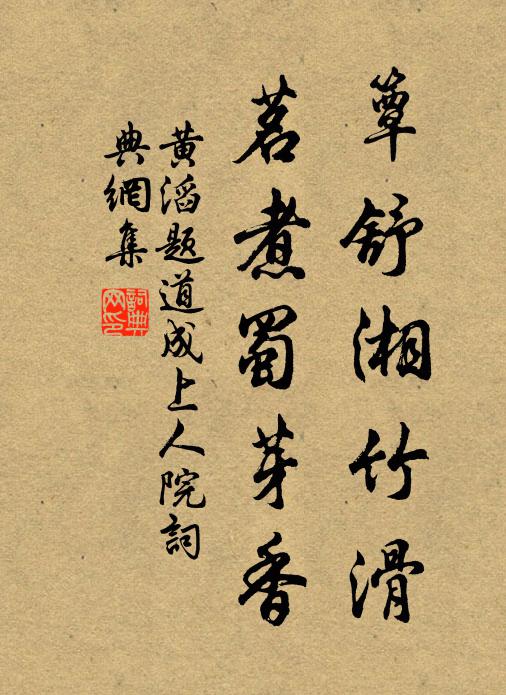 簟舒湘竹滑
茗煮蜀芽香
黄滔题道成上人院詞
典網集
詞典網印